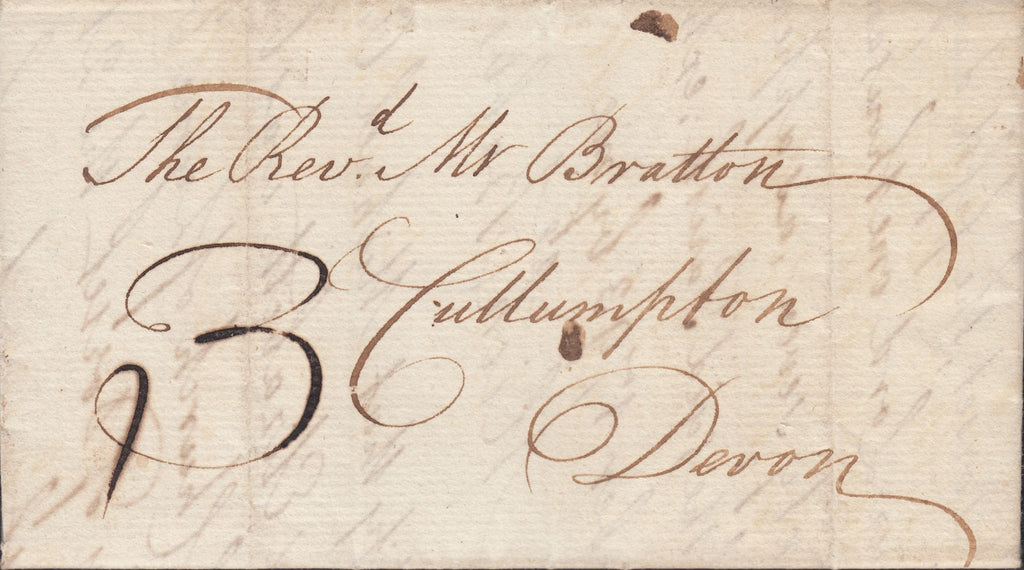 The Rev.d Mr Bratton
Cullumpton
3
Devon